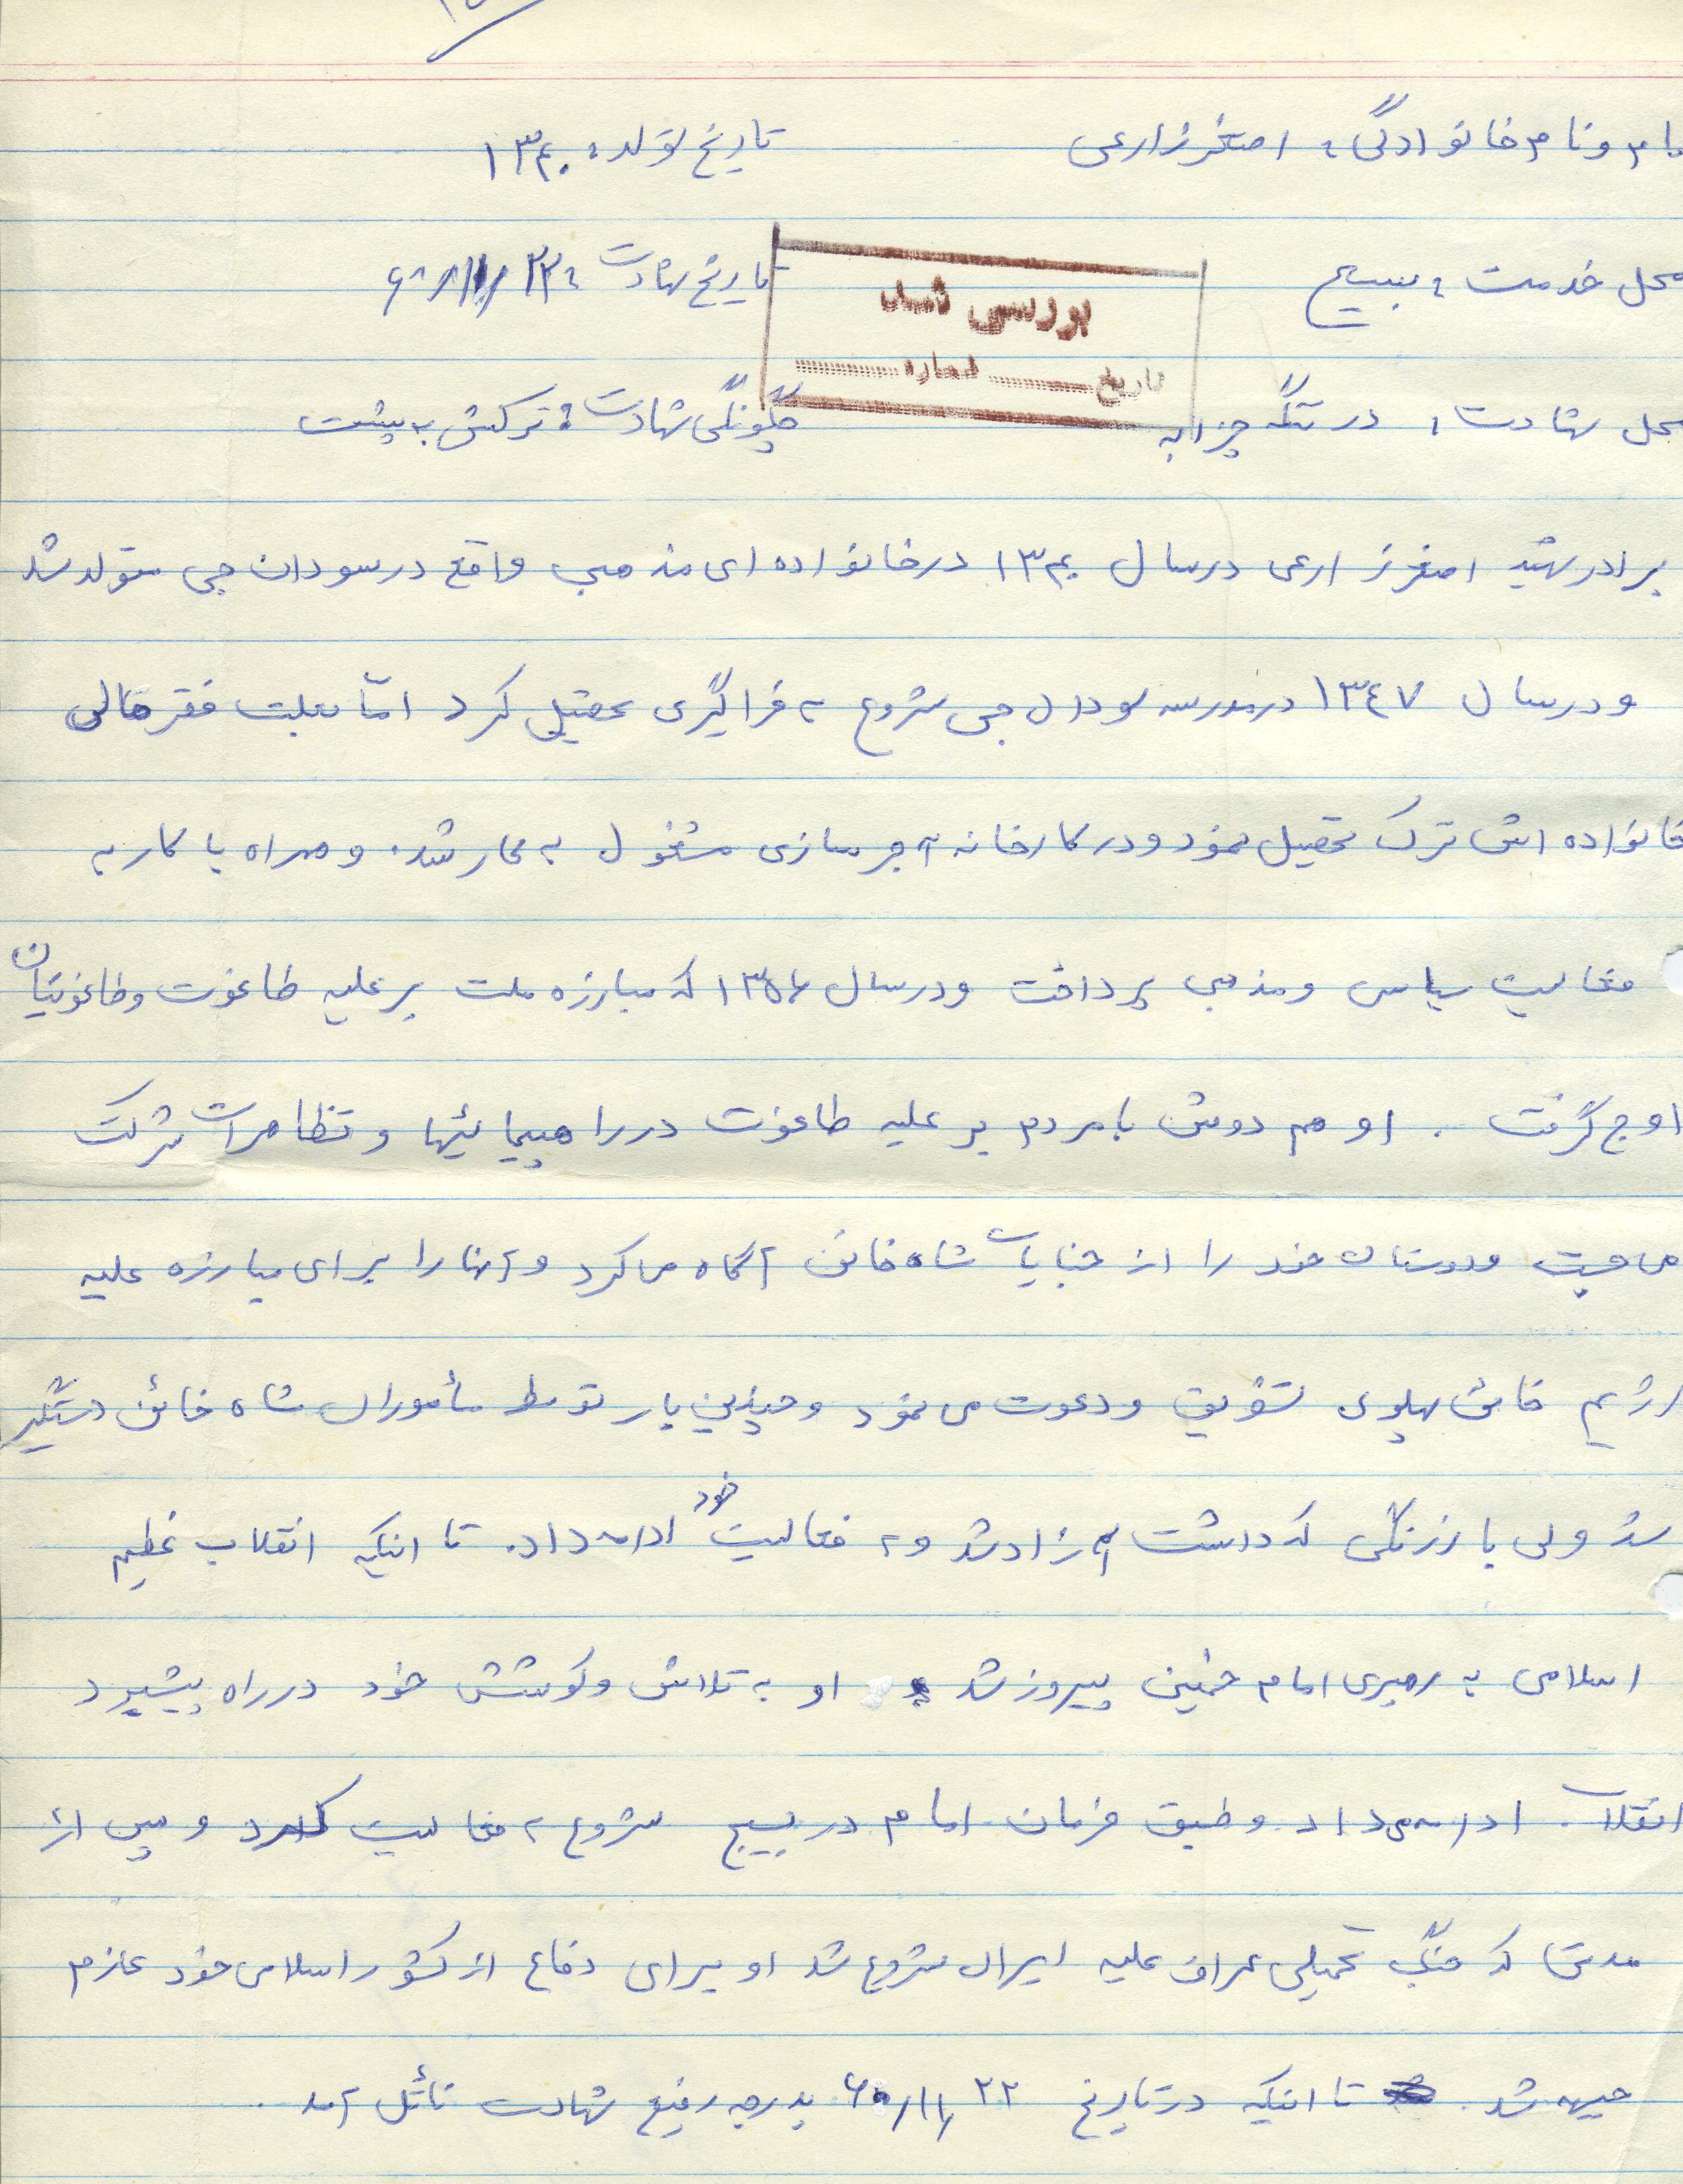 نام و نام خانوادگی: اصغر زارعی تاریخ تولد: ۱۳۴۰
محل خدمت: بسیج تاریخ شهادت: ۲۲/۱۱/۶۰
بررسی شد
تاریخ شماره
محل شهادت: در تنگه چزابه چگونگی شهادت: ترکش به پشت
برادر شهید اصغر زارعی در سال ۱۳۴۰ در خانواده ای مذهبی واقع در سودان جی متولد شد
و در سال ۱۳٤۷ در مدرسه سودان جی شروع به فراگیری تحصیل کرد امّا بعلت فقر مالی
خانواده اش ترک تحصیل نمود و در کارخانه آجرسازی مشغول به کار شد. و همراه با کار به
فعالیت سیاسی و مذهبی پرداخت و در سال ۱۳۵۶ که مبارزه ملت بر علیه طاغوت و طاغوتیان
اوج گرفت. او هم دوش با مردم بر علیه طاغوت در راهپیمائیها و تظاهرات شرکت
می جست و دوستان خود را از جنایات شاه خائن آگاه می کرد و آنها را برای مبارزه علیه
رژیم خائن پهلوی تشویق و دعوت می نمود و چندین بار توسط مأموران شاه خائن دستگیر
شد ولی با زرنگی که داشت آزاد شد و به فعالیت خود ادامه داد. تا اینکه انقلاب عظیم
اسلامی به رهبری امام خمینی پیروز شد او به تلاش و کوشش خود در راه پیشبرد
انقلاب ادامه می داد و طبق فرمان امام در بسیج شروع به فعالیت کرد و پس از
مدتی که جنگ تحمیلی عراق علیه ایران شروع شد او برای دفاع از کشور اسلامی خود عازم
جبهه شد. تا اینکه در تاریخ ۲۲/۱۱/۶۰ بدرجه رفیع شهادت نائل آمد.